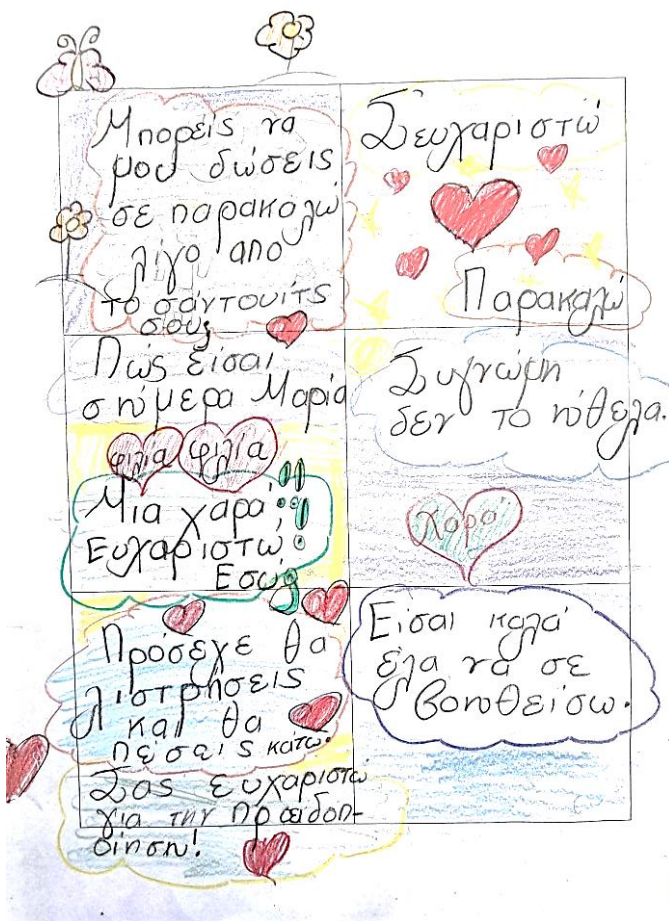 Μπορείς να
μου δώσεις
σε παρακαλώ
λίγο απο
το σάντουιτς
σου;
Σευχαριστώ
Παρακαλώ
Πώς είσαι
σημερα Μαρία
φιλία φιλία
Μια χαρά!!
Ευχαριστώ,
Εσύ;
Συγνώμη
δεν το ήθελα.
Χαρά
Πρόσεχε θα
λιστρήσεις
και θα
πέσεις κάτω.
Σας ευχαριστώ
για την προειδοπ-
οίηση!
Είσαι καλά
έλα να σε
βοηθείσω.